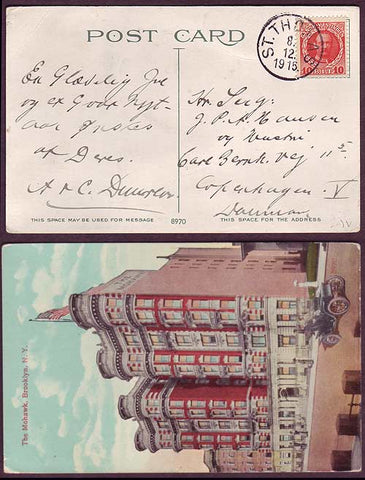 POST CARD
ST. THOMAS
8.
12.
1915.
10 BIT 10
En Glædelig Jul
og et Godt Nyt-
aar ønskes
af Deres.
A & C.
Hr. Serg:
J. P. A. Hansen
og Hustru
Carl Bernh. Vej 11 5.
Copenhagen. V
Danmark
THIS SPACE MAY BE USED FOR MESSAGE
8970
THIS SPACE FOR THE ADDRESS
The Mohawk, Brooklyn, N. Y.